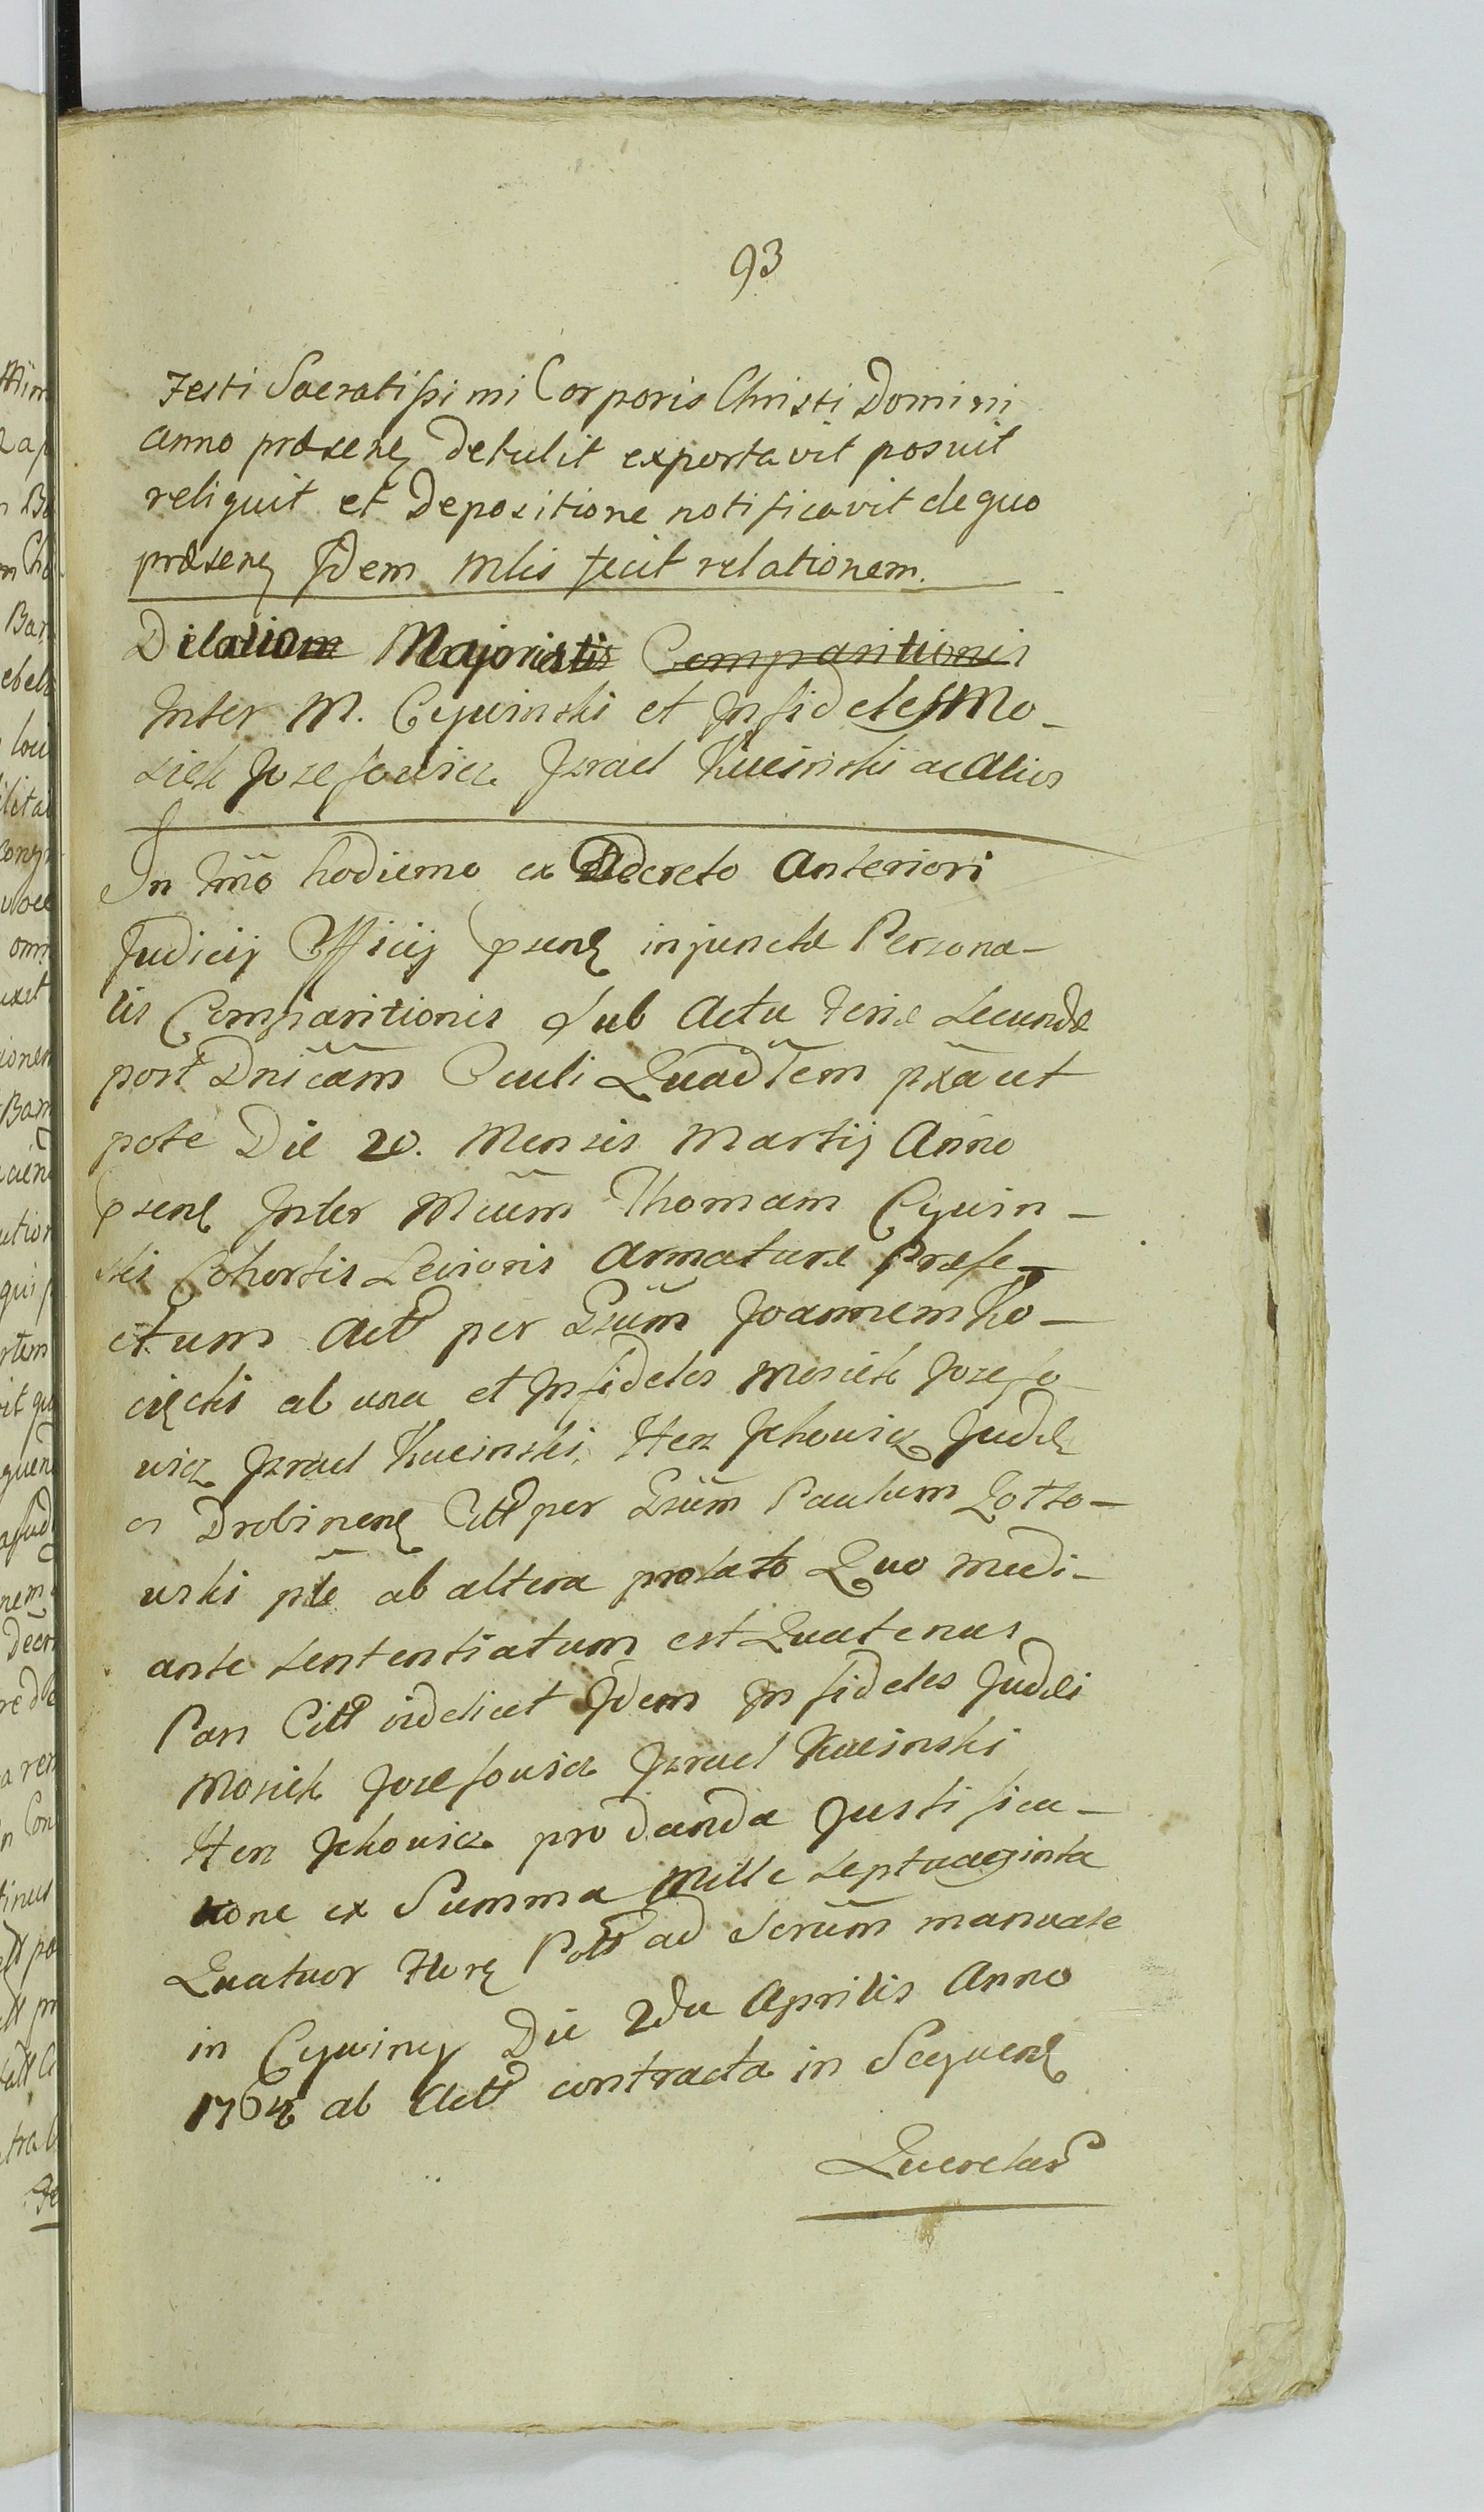 93
Festi Sacratissimi Corporis Christi Domini
anno præsenŧ detulit exportavit posuit
reliquit et Depositione notificavit de quo
præsenŧ Jdem Mlis fecit relationem.
Dilation Majoris Comparitionis
Inter M. Cywinski et Infideles Mo-
siek Jozefowicz Jzrael Kucinski ac Alios
In tmo hodierno ex Decreto Anteriori
Judicij Officij psenŧ injunctæ Persona-
lis Comparitionis sub Actu feriæ secundæ
post Dnicam Oculi Quadlem pxa ut
pote Die 20. Mensis Martij Anno
psenŧ Inter Mcum Thomam Cywin-
ski Cohortis Levioris Armaturæ Præfe-
ctum Actt per Gsum Joannem Ko-
ciecki ab una et Infideles Mosiek Jozefo
wicz Jzrael Kucinski, Herz Jckowicz Judæ
os Drobinenŧ Citt per Gsum Paulum Zotto-
wski pte ab altera prolato Quo medi-
ante sententiatum est Quatenus
Pars Citt videlicet Jdem Infideles Judæi
Mosiek Josefowicz Jzrael Kucinski
Herz Jckowicz pro danda Justifica-
tione ex Summa Mille septuaginta
Quatuor Flor Poll ad Scrum manuale
in Cywiny Die 2da Aprilis Anno
1764 ab Actt contracta in Sequenŧ
Querelas